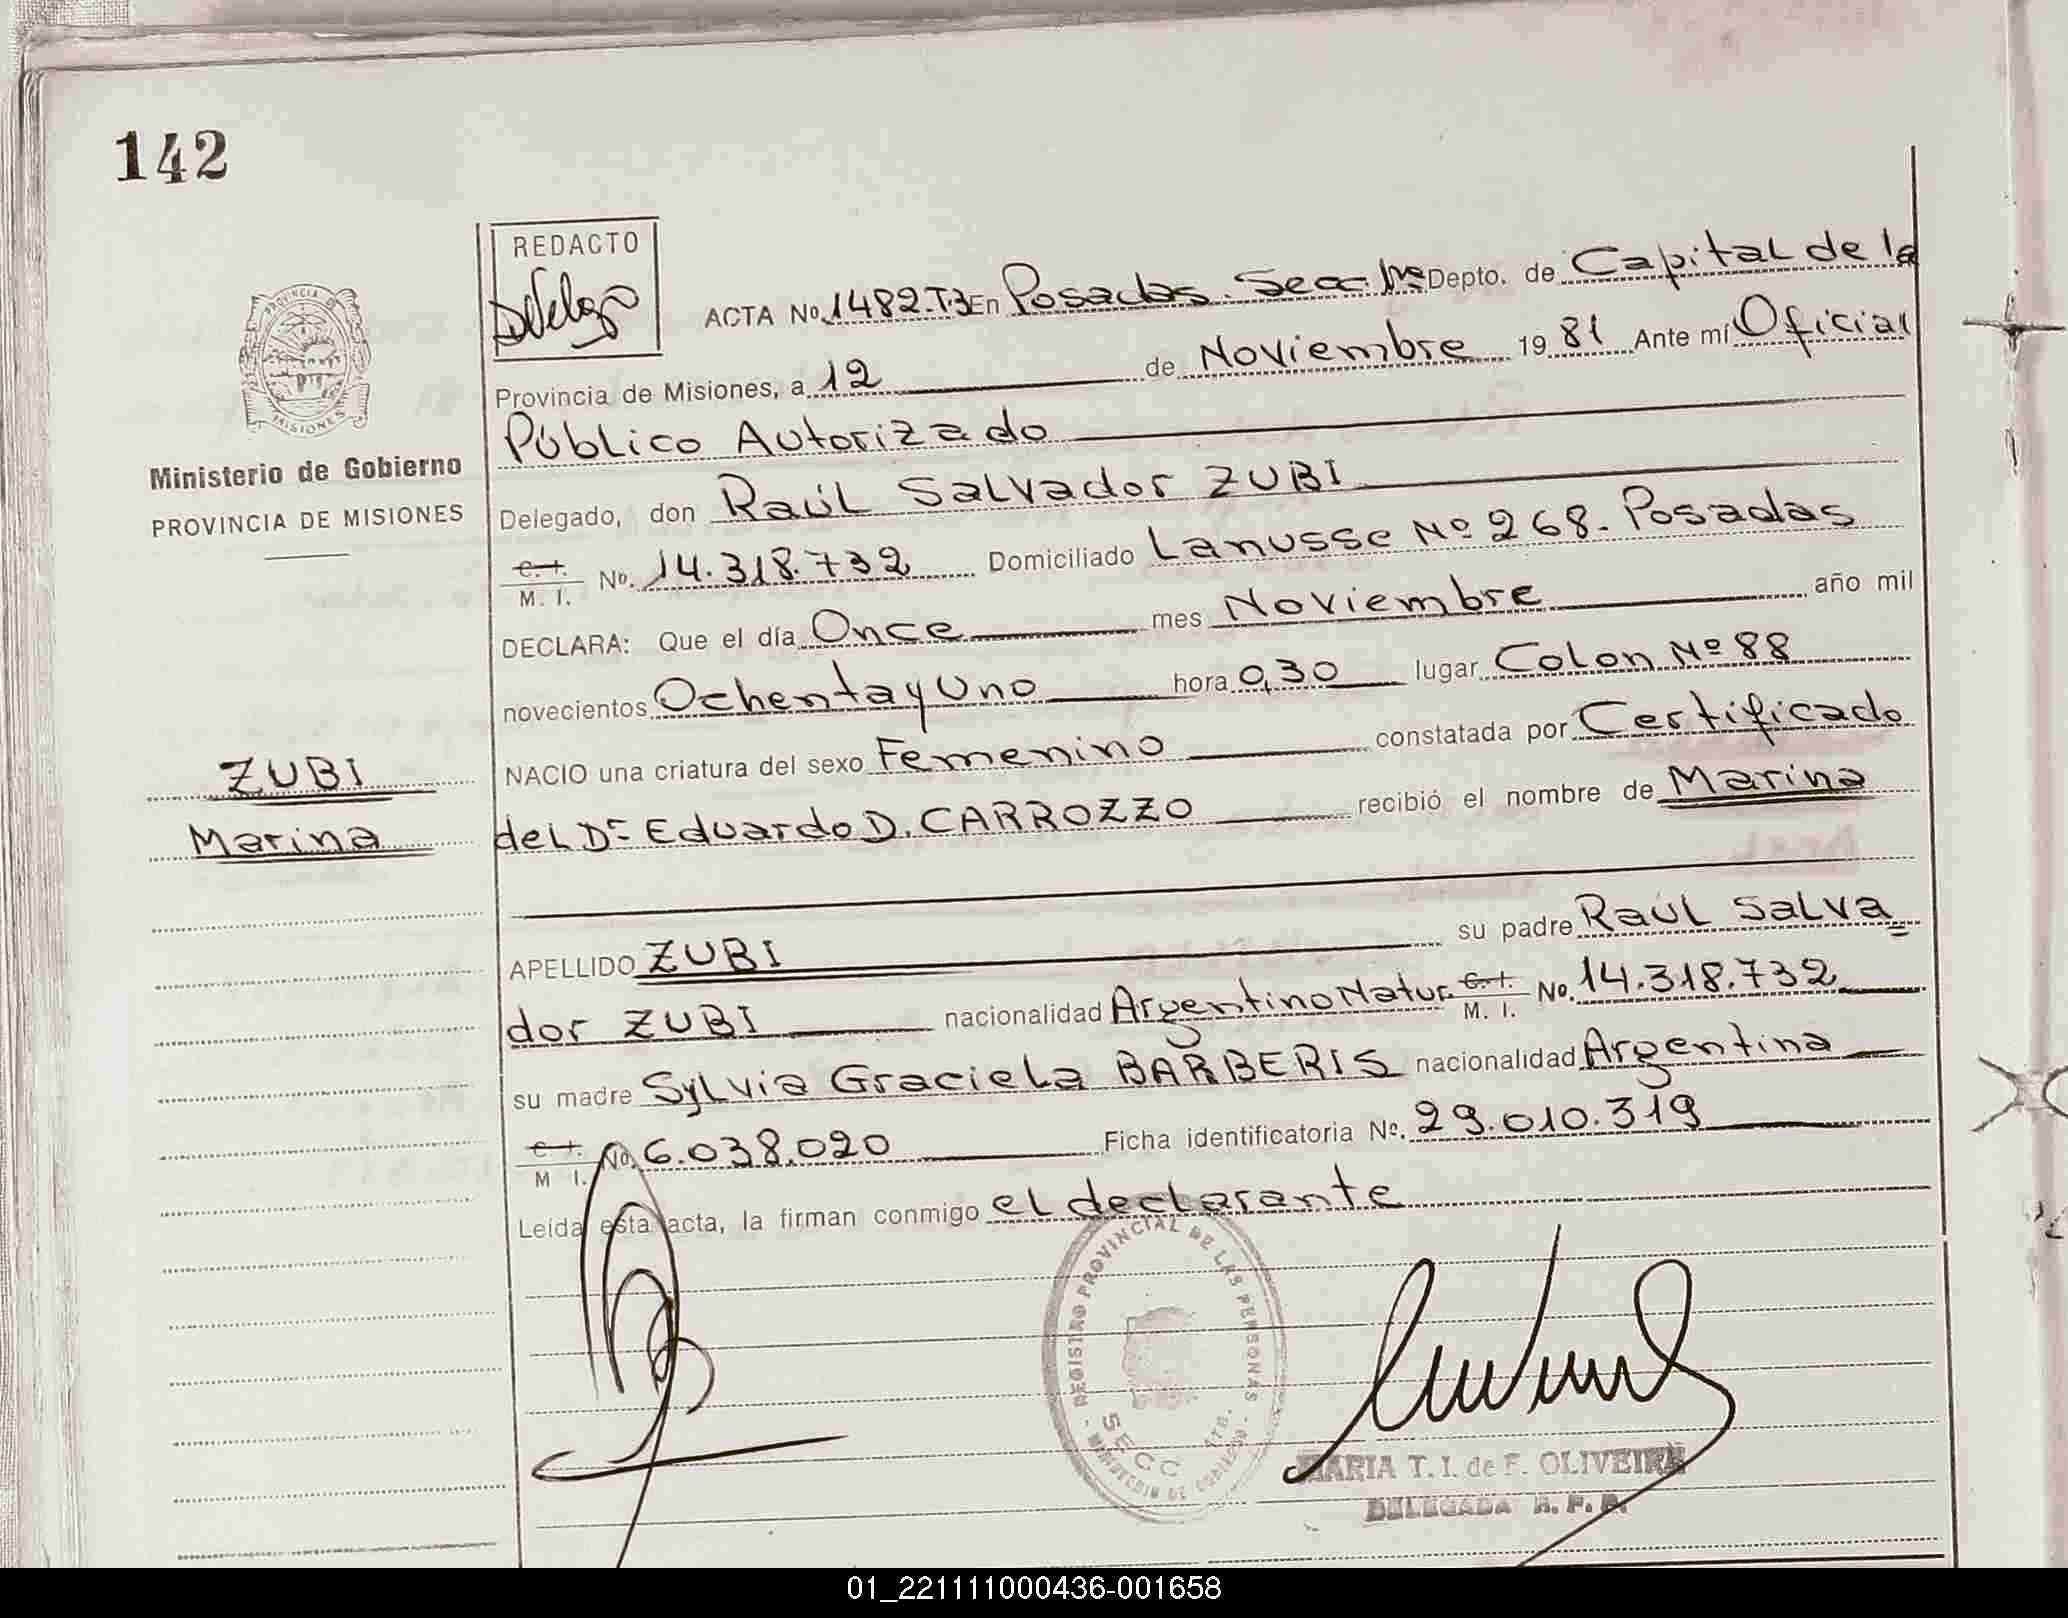 142
REDACTO
ACTA No. 1482-T.3 En Posadas. Secc. 1ra Depto. de Capital de la
Provincia de Misiones, a 12 de Noviembre 1981 Ante mí Oficial
Público Autorizado
Delegado, don Raúl Salvador ZUBI
C. I. M. I. No. 14.318.732 Domiciliado Lanusse Nº 268. Posadas
DECLARA: Que el día Once mes Noviembre año mil
novecientos Ochenta y Uno hora 0,30 lugar Colon Nº 88
NACIO una criatura del sexo Femenino constatada por Certificado
del Dr Eduardo D. CARROZZO recibió el nombre de Marina
APELLIDO ZUBI su padre Raúl Salva
dor ZUBI nacionalidad Argentino Natur. C. I. M. I. No. 14.318.732
su madre Sylvia Graciela BARBERIS nacionalidad Argentina
C. I. M I. No. 6.038.020 Ficha identificatoria Nº. 29.010.319
Leída esta acta, la firman conmigo el declarante
PROVINCIA DE
MISIONES
Ministerio de Gobierno
PROVINCIA DE MISIONES
ZUBI
Marina
REGISTRO PROVINCIAL DE LAS PERSONAS
SECC
MINISTERIO DE GOBIERNO
MARIA T. I. de F. OLIVEIRA
DELEGADA R. P. P.
01_221111000436-001658